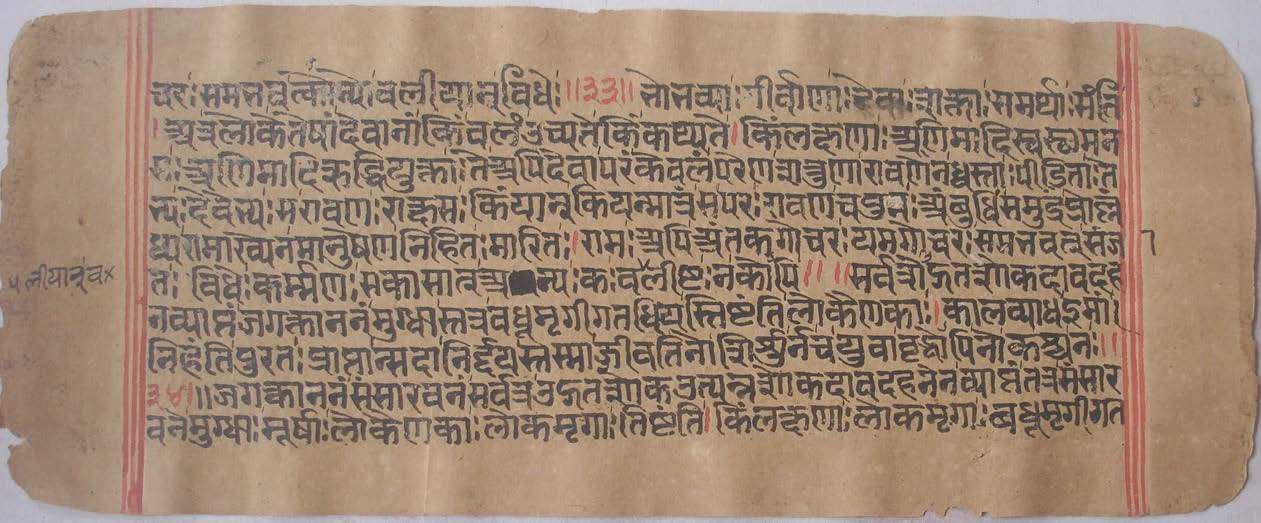 चरः समन्नबलान्मैन्यैः बलीयान् विधेः ॥३३॥ भो भव्याः गीर्वाणाः देवाः शक्ताः समर्थाः संति
। अत्र लोके तेषां देवानां किं बलं उच्यते किं कथ्यते । किंलक्षणाः अणिमादिस्वस्थमन
सः अणिमादिऋद्धियुक्ताः ते अपि देवा परं केवलं परेण शत्रुणा रावणेन ध्वस्ताः पीडिताः ते
भ्यः देवेभ्यः स रावणः राक्षसः कियान् कियन्मात्रं स परः रावणः च पुनः अंबुधिं समुद्रं प्रोल्लं
घ्य रामाख्येन मानुषेण निहितः मारितः । रामः अपि अंतकगोचरः यमगोचरः समन्नबल संजा
तः विधेः कर्म्मणः सकासात् अन्यः कः बलीष्टः न कोपि ॥ ॥ सर्वत्रोद्गतशोकदावदह
नव्याप्तं जगत्काननं मुग्धास्तत्र वधूमृगीगतधियस्तिष्टंति लोकैणकाः । कालव्याध इमां
निहंति पुरतः प्राप्तान्सदा निर्द्दयस्तस्माज्जीवति नो शिशुर्न च युवा वृद्धोपि नो कश्चन ॥
३४॥ जगत्काननं संसारवनं सर्वत्र उद्गतशोक उत्पन्नशोकदावदहनेन व्याप्तं तत्र संसार
वने मुग्धाः मूर्षाः लोकैणकाः लोकमृगाः तिष्टंति । किंलक्षणाः लोकमृगाः वधूमृगीगत
लीयान् व×